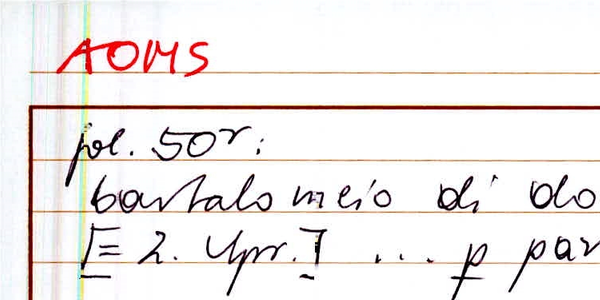 AOMS
fol. 50r:
bartalomeio di do
[= 2. Apr.] ... p par